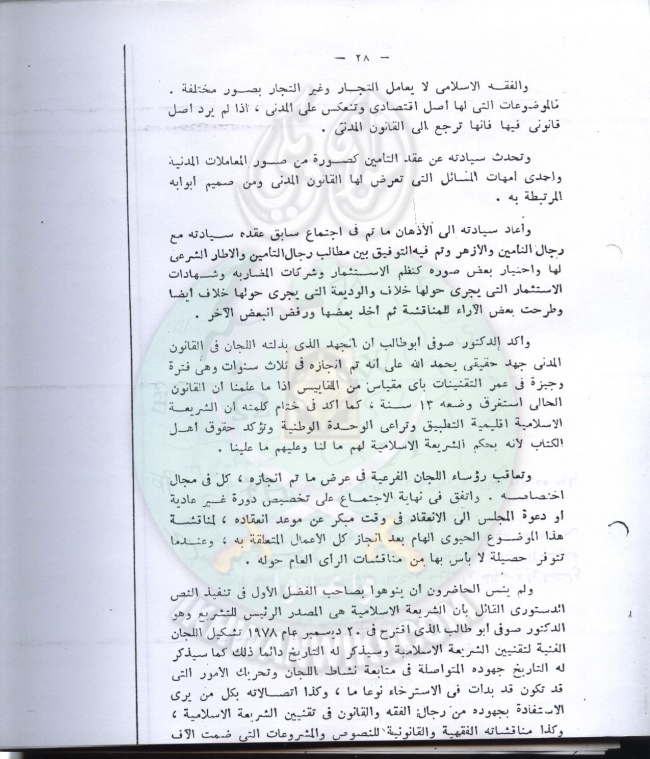 — ٢٨ —
والفقه الاسلامى لا يعامل التجار وغير التجار بصور مختلفة .
فالموضوعات التى لها أصل اقتصادى وتنعكس على المدنى ، اذا لم يرد اصل
قانونى فيها فانها ترجع الى القانون المدنى .
وتحدث سيادته عن عقد التأمين كصورة من صور المعاملات المدنية
واحدى أمهات المسائل التى تعرض لها القانون المدنى ومن صميم أبوابه
المرتبطة به .
وأعاد سيادته الى الأذهان ما تم فى اجتماع سابق عقده سيادته مع
رجال التأمين والازهر وتم فيه التوفيق بين مطالب رجال التأمين والاطار الشرعى
لها واختيار بعض صوره كنظم الاستثمار وشركات المضاربه وشهادات
الاستثمار التى يجرى حولها خلاف والوديعة التى يجرى حولها خلاف ايضا
وطرحت بعض الآراء للمناقشة ثم أخذ بعضها ورفض البعض الآخر .
وأكد الدكتور صوفى ابوطالب ان الجهد الذى بذلته اللجان فى القانون
المدنى جهد حقيقى يحمد الله على انه تم انجازه فى ثلاث سنوات وهى فترة
وجيزة فى عمر التقنينات بأى مقياس من المقاييس اذا ما علمنا ان القانون
الحالى استغرق وضعه ١٣ سنة ، كما أكد فى ختام كلمته ان الشريعة
الاسلامية اقليمية التطبيق وتراعى الوحدة الوطنية وتؤكد حقوق اهل
الكتاب لأنه بحكم الشريعة الاسلامية لهم ما لنا وعليهم ما علينا .
وتعاقب رؤساء اللجان الفرعية فى عرض ما تم انجازه ، كل فى مجال
اختصاصه . واتفق فى نهاية الاجتماع على تخصيص دورة غير عادية
او دعوة المجلس الى الانعقاد فى وقت مبكر عن موعد انعقاده ، لمناقشة
هذا الموضوع الحيوى الهام بعد انجاز كل الأعمال المتعلقة به ، وعندما
تتوفر حصيلة لا بأس بها من مناقشات الرأى العام حوله .
ولم ينس الحاضرون ان ينوهوا بصاحب الفضل الأول فى تنفيذ النص
الدستورى القائل بان الشريعة الاسلامية هى المصدر الرئيس للتشريع وهو
الدكتور صوفى ابو طالب الذى اقترح فى ٢٠ ديسمبر عام ١٩٧٨ تشكيل اللجان
الفنية لتقنيين الشريعة الاسلامية وسيذكر له التاريخ دائما ذلك كما سيذكر
له التاريخ جهوده المتواصلة فى متابعة نشاط اللجان وتحريك الأمور التى
قد تكون قد بدات فى الاسترخاء نوعا ما ، وكذا اتصالاته بكل من يرى
الاستفادة بجهوده من رجال الفقه والقانون فى تقنيين الشريعة الاسلامية ،
وكذا مناقشاته الفقهية والقانونية للنصوص والمشروعات التى ضمت الآف